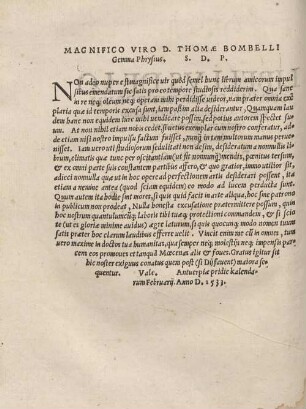 MAGNIFICO VIRO D. THOMÆ BOMBELLI
Gemma Phrysius, S. D. P.
NOn adeo nuper est magnifice vir quod semel hunc librum amicorum impul
situs emendatum sic satis pro eo tempore studiosis reddiderim. Qua sane
in re neq; oleum neq; operam mihi perdidisse videor, nam præter omnia ex
plaria quæ id temporis excusa fuere, iam passim alia desiderantur, Quamquam lau
dem hanc non equidem iure mihi vendicare possem, sed potius autorem spectet su
um. At non nihil etiam nobis cedet, si vetus exemplar cum nostro conferatur, a
de etiam nisi nostro impulsu factum fuisset, nunq; in tam multorum manus perue
nisset. Iam vero uti studiosorum sedulitati non desim, desiderata a nonnullis li
brum, elimatis quæ tunc per oscitantiam (ut sit nonnunq;) mendis, paruius tersum,
& ex omni parte suis constantem partibus affero, & quo gratior, immo vtilior sit,
adieci nonnulla quæ ut in hoc opere ad perfectionem artis desiderari possent, ita
etiam a nemine antea (quod sciam equidem) eo modo ad lucem perducta sunt.
Quum autem ita hodie sint mores, si quis quid facit in arte aliqua, hoc sine patrono
in publicum non prodeat, Nulla honesta excusatione prætermittere possum, quin
hoc nostrum quantulumcuq; laboris tibi tuæq; protectioni commendem, & si scio
te (ut es gloriæ minime auidus) ægre laturum, si quis quocunq; modo tuum nomen
satis præter hoc clarum laudibus efferre velit. Vincit enim me cum in omnes, tum
vero maxime in doctos tua humanitas, qua semper neq; molestijs neq; impensis parcens
eos promoues et tanquã Mœcenas alis & foues. Gratus igitur sit
hic noster exiguus conatus quem post (si Dij fauent) maiora se
quentur. Vale. Antuerpiæ pridie kalenda-
rum Februarij. Anno D. 1533.